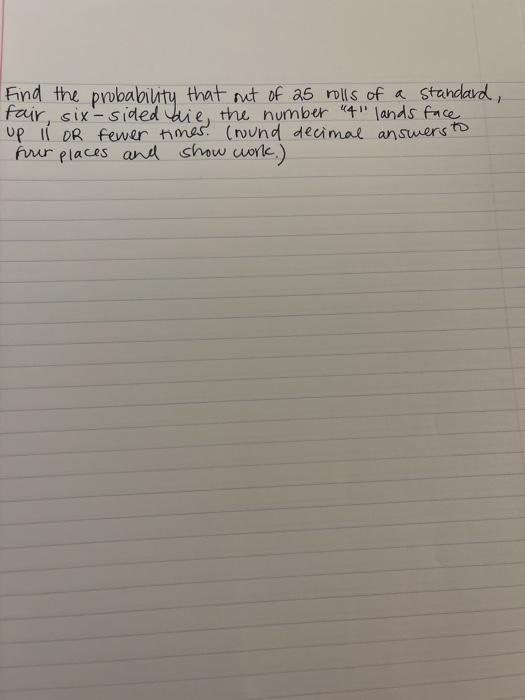 Find the probability that out of 25 rolls of a standard,
fair, six-sided die, the number "4" lands face
up 11 OR fewer times. (round decimal answers to
four places and show work.)